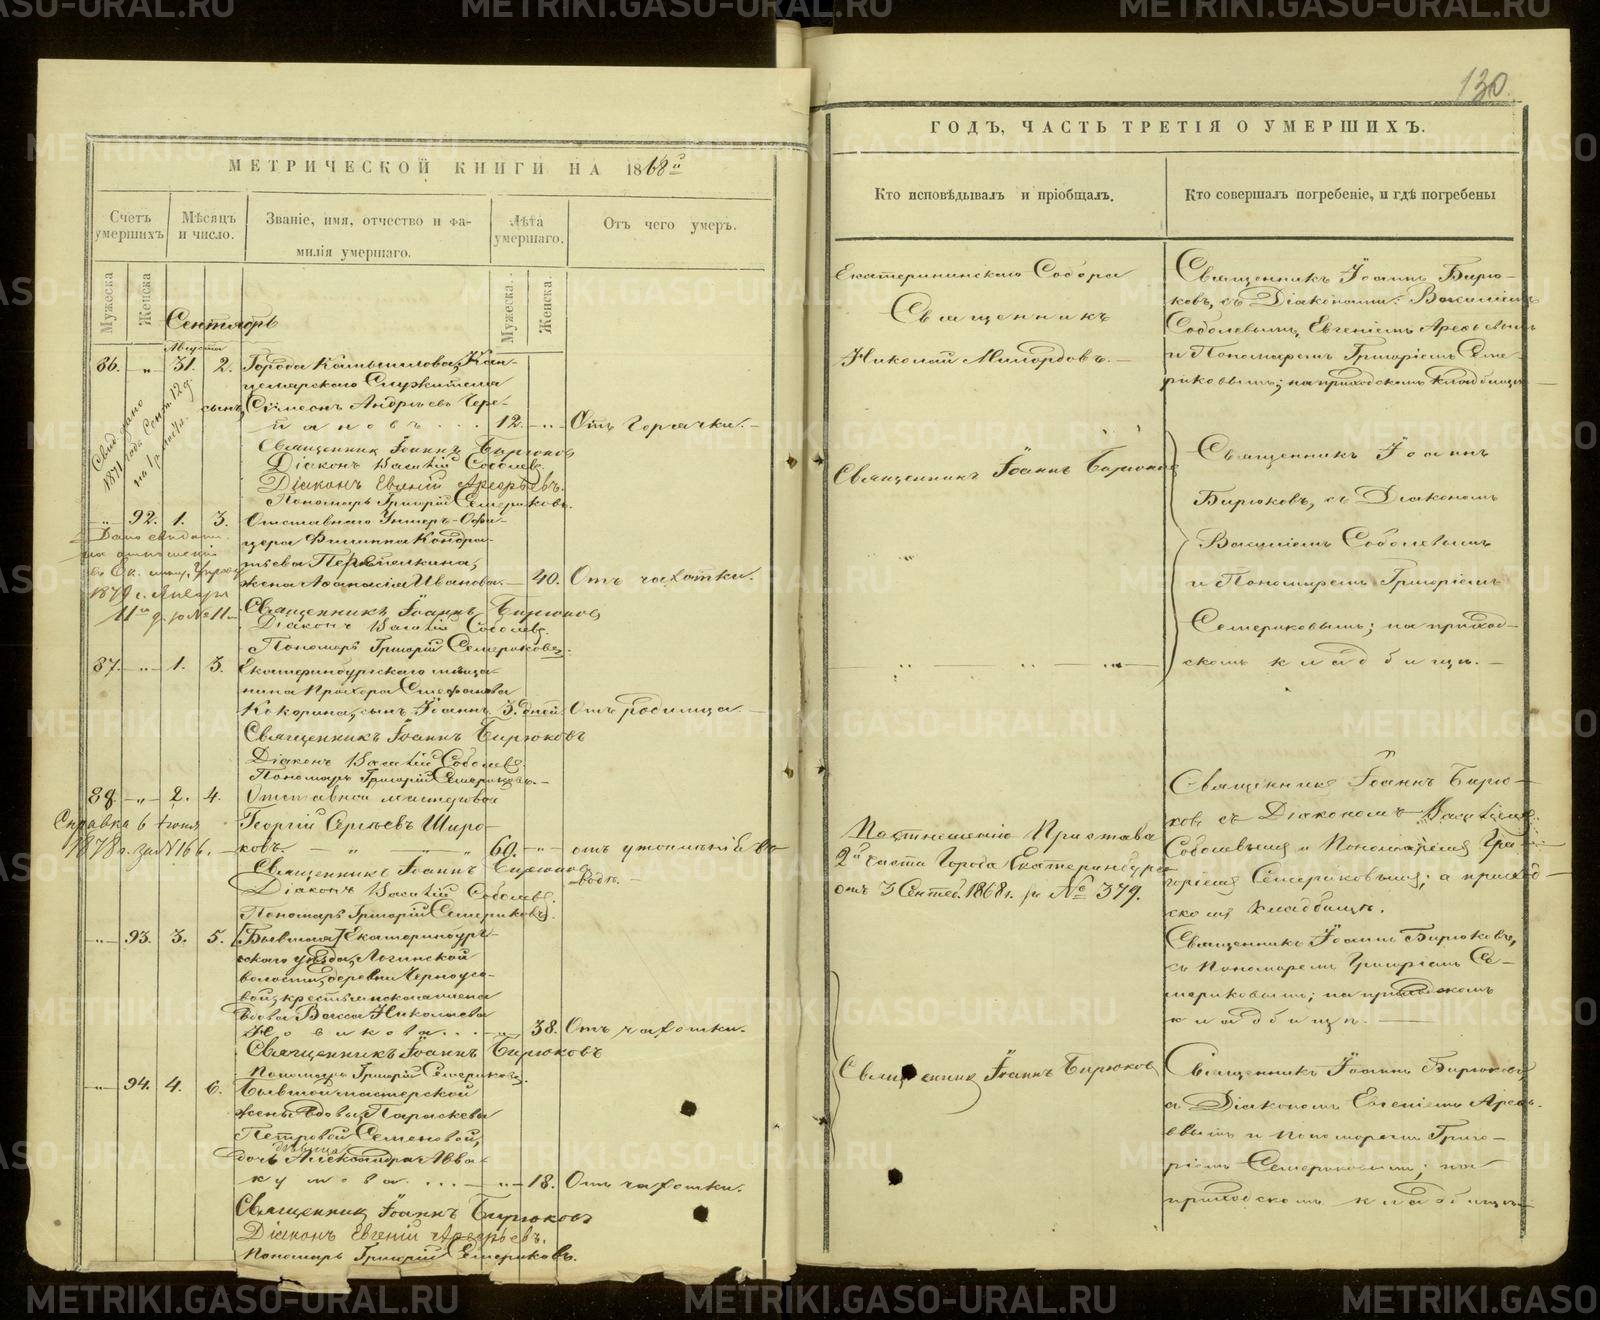 METRIKI.GASO-URAL.RU
130.
МЕТРИЧЕСКОЙ КНИГИ НА 1868й
Счетъ умершихъ.
Мѣсяцъ и число.
Званіе, имя, отчество и фамилія умершаго.
Лѣта умершаго.
Отъ чего умеръ.
Мужеска.
Женска.
Мужеска.
Женска.
Сентябрь
Августа
86. „ 31. 2. Города Камышлова, Кан-
целярскаго Служителя
сынъ, Сѵмеонъ Андреевъ Чере-
пановъ... 12. „ Отъ горячки.
Священникъ Іоаннъ Бирюковъ
Діаконъ Василій Соболевъ.
Діаконъ Евгеній Арефьевъ.
Пономарь Григорій Семериковъ.
„ 92. 1. 3. Отставнаго Унтеръ-Офи-
цера Филиппа Кондра-
тьева
жена Афанасія Иванова. 40. Отъ чахотки.
Священникъ Іоаннъ Бирюковъ
Діаконъ Василій Соболевъ.
Пономарь Григорій Семериковъ.
87. „ 1. 3. Екатеринбургскаго мѣща-
нина Прохора Стефанова
Кокорина, сынъ Іоаннъ 3. дней Отъ родимца.
Священникъ Іоаннъ Бирюковъ
Діаконъ Василій Соболевъ.
Пономарь Григорій Семериковъ.
88. „ 2. 4. Отставной мастеровой
Справка 6 Іюня
1878 г. за № 166.
Георгій Сергѣевъ Широ-
ковъ. 60. „ отъ утопленія въ
водѣ.
Священникъ Іоаннъ Бирюковъ
Діаконъ Василій Соболевъ.
Пономарь Григорій Семериковъ.
„ 93. 3. 5. Бывшая Екатеринбург-
скаго уѣзда,
волости, деревни Черноусо-
вой, крестьянскаго
вдова Васса Николаева
Новикова... 38. Отъ чахотки.
Священникъ Іоаннъ Бирюковъ
Пономарь Григорій Семериковъ.
„ 94. 4. 6. Бывшей мастерской
жены вдовы, Параскевы
Петровой Семеновой,
дѣвица
дочь Александра Авва-
кумова. ... 18. Отъ чахотки.
Священникъ Іоаннъ Бирюковъ
Діаконъ Евгеній Арефьевъ.
Пономарь Григорій Семериковъ.
Свид. дано
1871 года Сент. 12 д.
Дано свидѣт.
на отношеніе
1879 г. Января
11го д. за № 11м
ГОДЪ, ЧАСТЬ ТРЕТІЯ О УМЕРШИХЪ.
Кто исповѣдывалъ и пріобщалъ.
Кто совершалъ погребеніе, и гдѣ погребены
Екатерининскаго Собора
Священникъ
Николай Милордовъ.
Священникъ Іоаннъ Бирюковъ
По отношенію Пристава
2й части Города Екатеринбурга
отъ 3 Сентяб. 1868 г. за № 379.
Священникъ Іоаннъ Бирюковъ
Священникъ Іоаннъ Бирю-
ковъ, съ Діаконами: Василіемъ
Соболевымъ, Евгеніемъ Арефьевымъ
и Пономаремъ Григоріемъ Семе-
риковымъ; на приходскомъ кладбищѣ
Священникъ Іоаннъ
Бирюковъ, съ Діакономъ
Василіемъ Соболевымъ
и Пономаремъ Григоріемъ
Семериковымъ; на приход-
скомъ кладбищѣ.
Священникъ Іоаннъ Бирю-
ковъ съ Діакономъ Василіемъ
Соболевымъ и Пономаремъ Гри-
горіемъ Семериковымъ; а приход-
скомъ кладбищѣ.
Священникъ Іоаннъ Бирюковъ,
съ Пономаремъ Григоріемъ Се-
мериковымъ; на приходскомъ
кладбищѣ.
Священникъ Іоаннъ Бирюковъ,
съ Діакономъ Евгеніемъ Арефь-
евымъ и Пономаремъ Григо-
ріемъ Семериковымъ; на
приходскомъ кладбищѣ